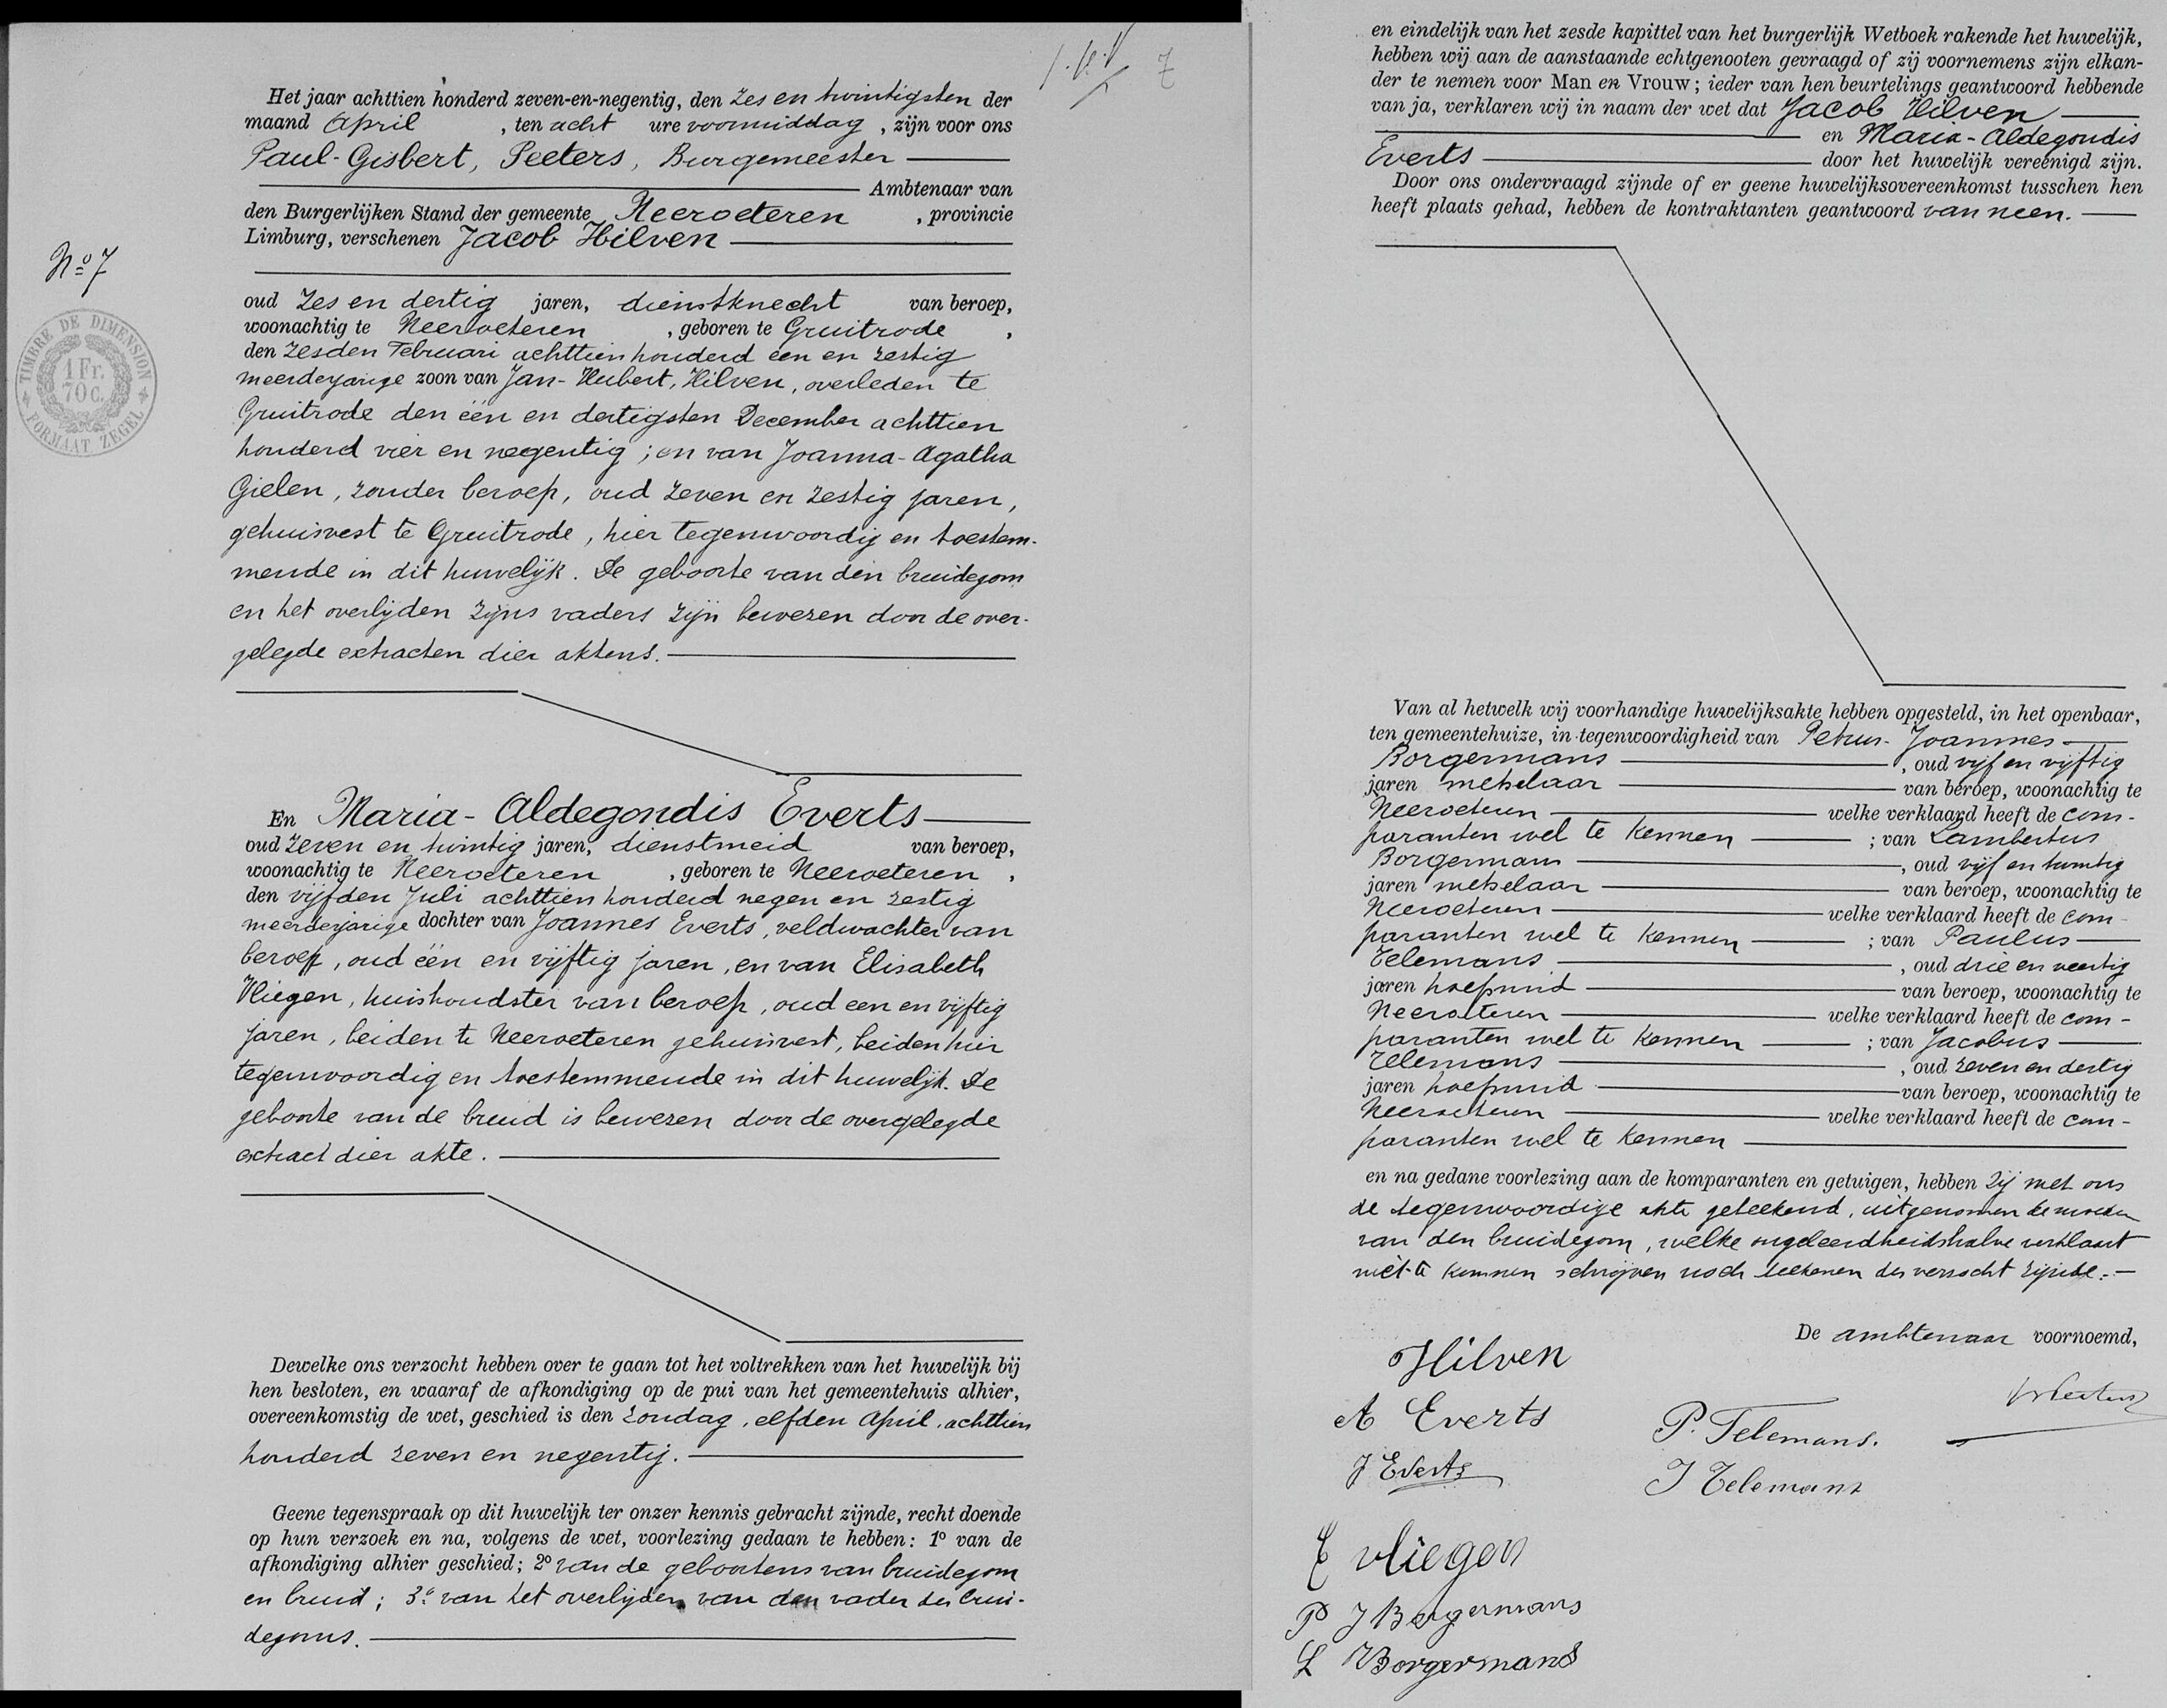 1.V.V 7
Het jaar achttien honderd zeven-en-negentig, den zes en twintigsten der
maand April , ten acht ure voormiddag , zijn voor ons
Paul-Gisbert, Peeters, Burgemeester
Ambtenaar van
den Burgerlijken Stand der gemeente Neeroeteren , provincie
Limburg, verschenen Jacob Hilven
No 7
TIMBRE DE DIMENSION
1 Fr.
70 c.
FORMAAT ZEGEL
oud zes en dertig jaren, dienstknecht van beroep,
woonachtig te Neeroeteren , geboren te Gruitrode ,
den zesden Februari achttien honderd een en zestig
meerderjarige zoon van Jan-Hubert, Hilven, overleden te
Gruitrode den één en dertigsten December achttien
honderd vier en negentig ; en van Joanna-Agatha
Gielen, zonder beroep, oud zeven en zestig jaren,
gehuisvest te Gruitrode, hier tegenwoordig en toestem-
mende in dit huwelijk. De geboorte van den bruidegom
en het overlijden zijns vaders zijn bewezen door de over-
gelegde extracten dier aktens.
En Maria-Aldegondis Everts
oud zeven en twintig jaren, dienstmeid van beroep,
woonachtig te Neeroeteren , geboren te Neeroeteren ,
den vijfden Juli achttien honderd negen en zestig
meerderjarige dochter van Joannes Everts, veldwachter van
beroep, oud één en vijftig jaren, en van Elisabeth
Vliegen, huishoudster van beroep, oud een en vijftig
jaren, beiden te Neeroeteren gehuisvest, beiden hier
tegenwoordig en toestemmende in dit huwelijk. De
geboorte van de bruid is bewezen door de overgelegde
extract dier akte.
Dewelke ons verzocht hebben over te gaan tot het voltrekken van het huwelijk bij
hen besloten, en waaraf de afkondiging op de pui van het gemeentehuis alhier,
overeenkomstig de wet, geschied is den zondag, elfden April, achttien
honderd zeven en negentig.
Geene tegenspraak op dit huwelijk ter onzer kennis gebracht zijnde, recht doende
op hun verzoek en na, volgens de wet, voorlezing gedaan te hebben: 1º van de
afkondiging alhier geschied; 2º van de geboortens van bruidegom
en bruid; 3º van het overlijden van den vader des brui-
degoms.
en eindelijk van het zesde kapittel van het burgerlijk Wetboek rakende het huwelijk,
hebben wij aan de aanstaande echtgenooten gevraagd of zij voornemens zijn elkan-
der te nemen voor Man en Vrouw; ieder van hen beurtelings geantwoord hebbende
van ja, verklaren wij in naam der wet dat Jacob Hilven
en Maria-Aldegondis
Everts door het huwelijk vereenigd zijn.
Door ons ondervraagd zijnde of er geene huwelijksovereenkomst tusschen hen
heeft plaats gehad, hebben de kontraktanten geantwoord van neen.
Van al hetwelk wij voorhandige huwelijksakte hebben opgesteld, in het openbaar,
ten gemeentehuize, in tegenwoordigheid van Petrus-Joannes
Borgermans , oud vijf en vijftig
jaren metselaar van beroep, woonachtig te
Neeroeteren welke verklaard heeft de com-
paranten wel te kennen ; van Lambertus
Borgermans , oud vijf en twintig
jaren metselaar van beroep, woonachtig te
Neeroeteren welke verklaard heeft de com-
paranten wel te kennen ; van Paulus
Telemans , oud drie en veertig
jaren hoefsmid van beroep, woonachtig te
Neeroeteren welke verklaard heeft de com-
paranten wel te kennen ; van Jacobus
Telemans , oud zeven en dertig
jaren hoefsmid van beroep, woonachtig te
Neeroeteren welke verklaard heeft de com-
paranten wel te kennen
en na gedane voorlezing aan de komparanten en getuigen, hebben zij met ons
de tegenwoordige akte geteekend, uitgenomen de moeder
van den bruidegom, welke ongeleerdheidshalve verklaart
niet te kunnen schrijven noch teekenen des verzocht zijnde.
De ambtenaar voornoemd,
Hilven
A Everts
P. Telemans.
J Everts
J Telemans
E vliegen
P J Borgermans
L Borgermans